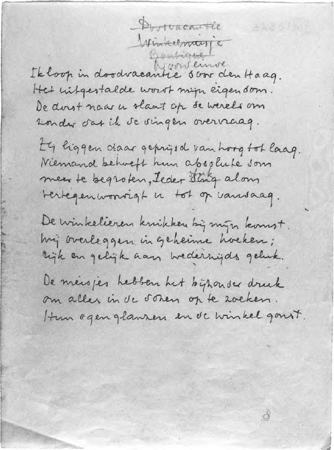 Doodvacantie
Winkelmeisje
Boutique
Ik loop in doodvacantie door den Haag.
Het uitgestalde wordt mijn eigendom.
De dorst naar u slaat op de wereld om
zonder dat ik de dingen overvraag.
Zij liggen daar geprijsd van hoog tot laag.
Niemand behoeft hun absolute som
meer te begroten. Ieder ding alom
vertegenwoordigt u tot op vandaag.
De winkelieren knikken bij mijn komst.
Wij overleggen in geheime hoeken;
rijk en gelijk aan wederzijds geluk.
De meisjes hebben het bijzonder druk
om alles in de dozen op te zoeken.
Hun ogen glanzen en de winkel gonst.
8